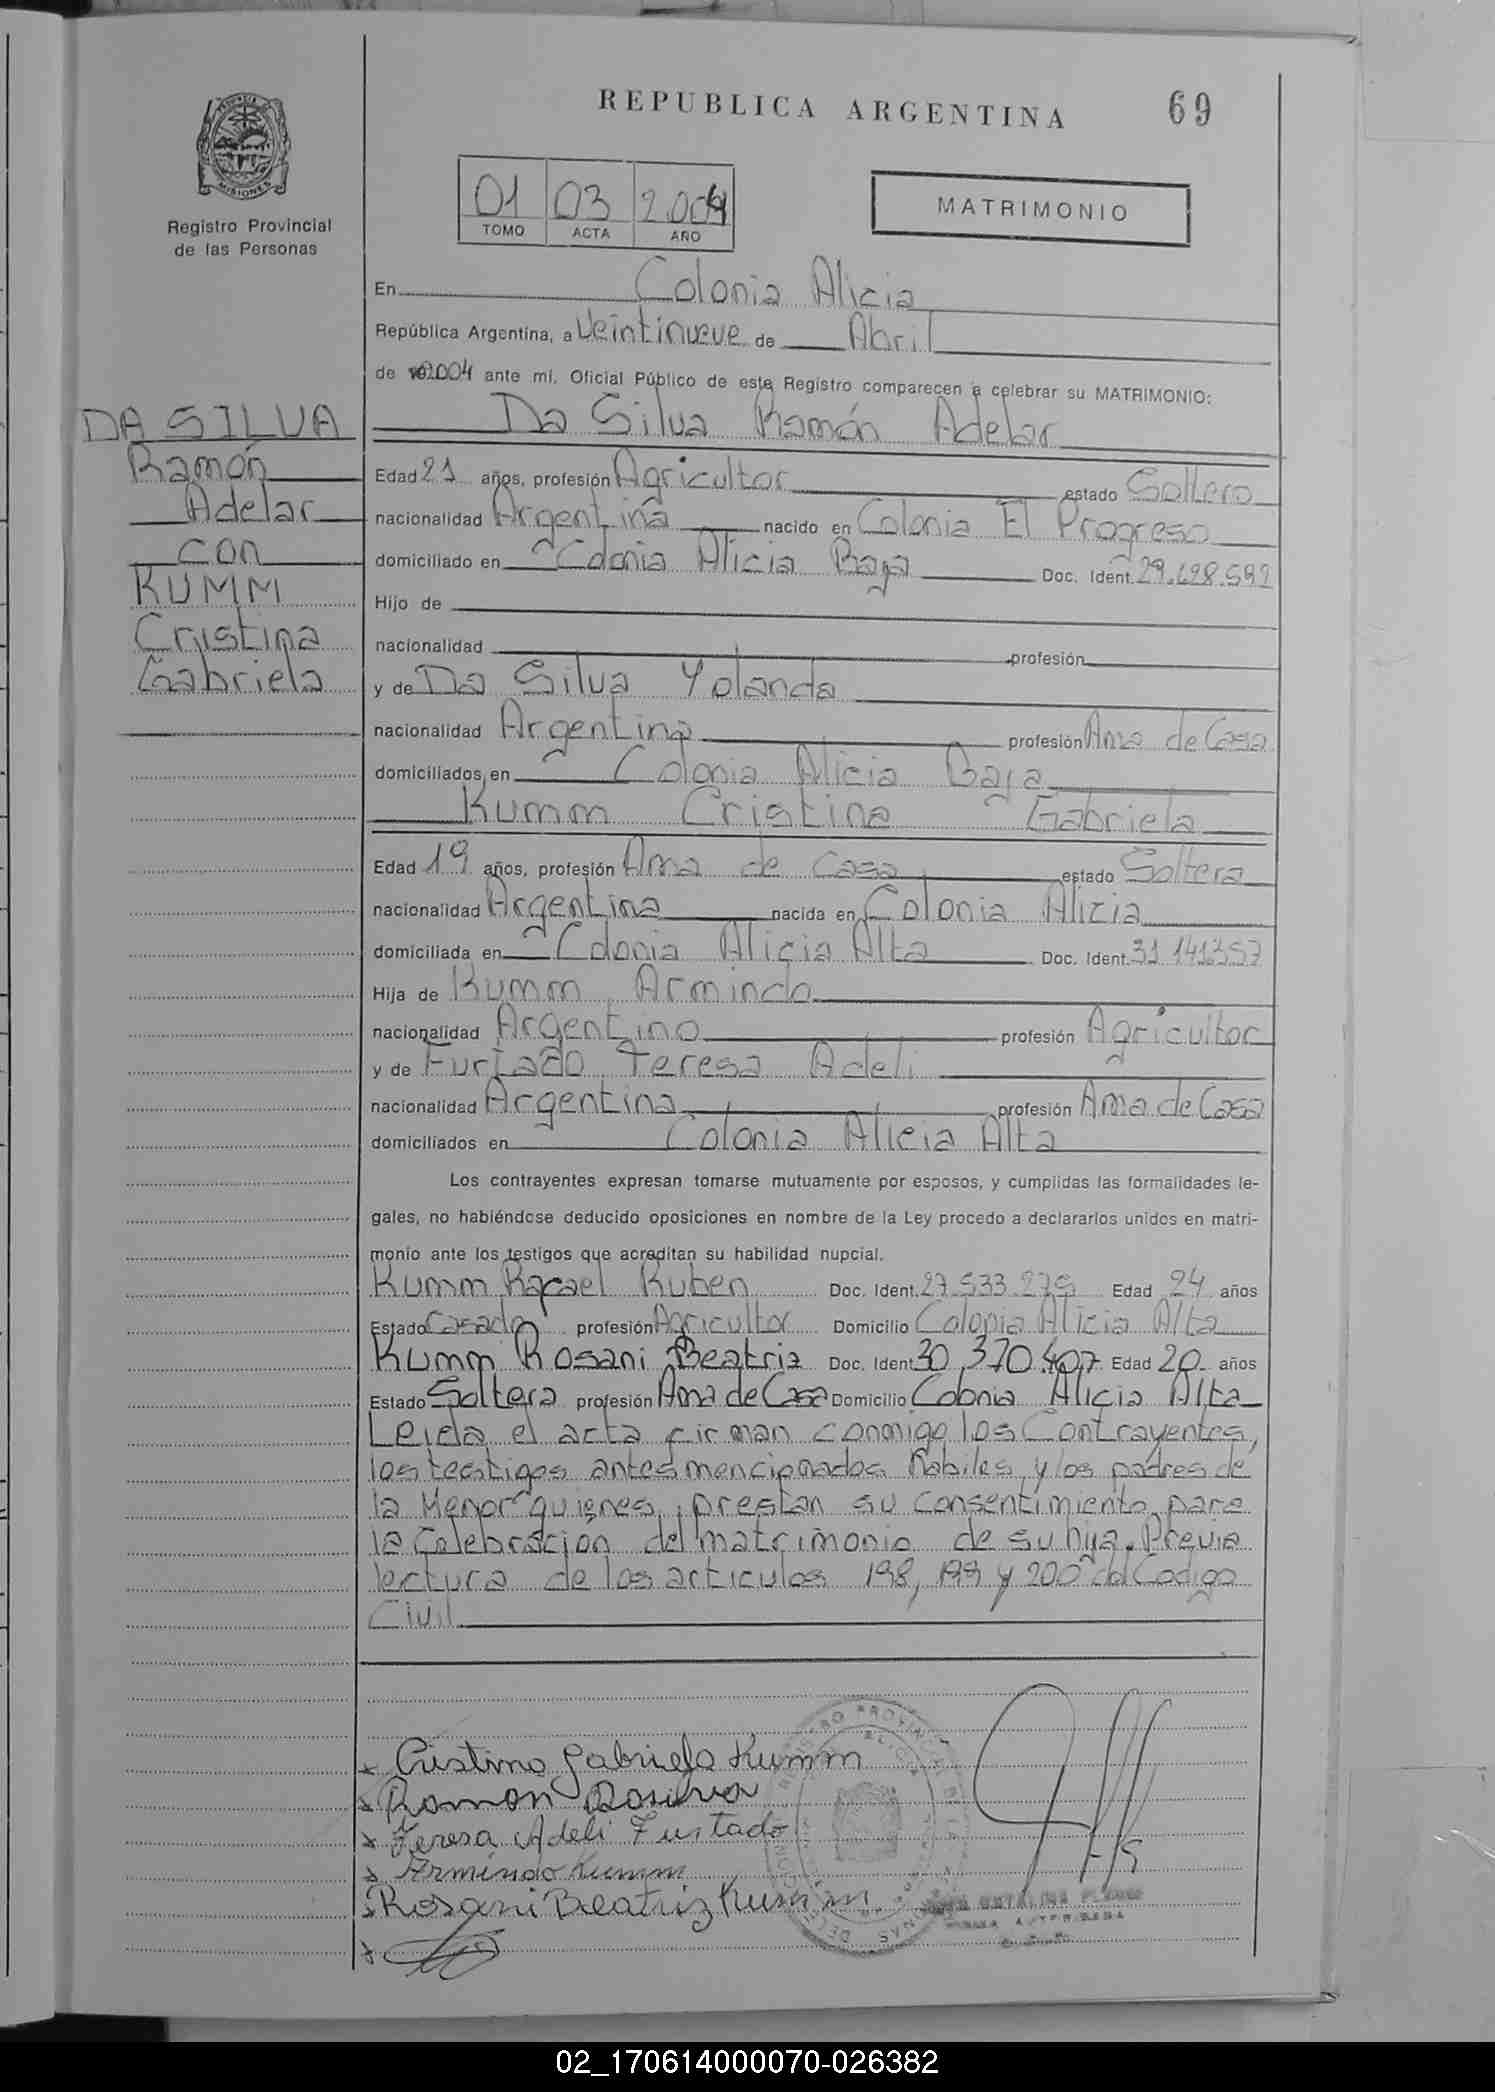 REPUBLICA ARGENTINA 69
PROVINCIA DE
MISIONES
Registro Provincial
de las Personas
01 03 2.004
TOMO ACTA AÑO
MATRIMONIO
En Colonia Alicia
República Argentina, a Veintinueve de Abril
de 2.004 ante mí, Oficial Público de este Registro comparecen a celebrar su MATRIMONIO:
DA SILVA
Ramón
Adelar
con
KUMM
Cristina
Gabriela
Da Silva Ramón Adelar
Edad 21 años, profesión Agricultor estado Soltero
nacionalidad Argentina nacido en Colonia El Progreso
domiciliado en Colonia Alicia Baja Doc. Ident.
Hijo de
nacionalidad profesión
y de Da Silva Yolanda
nacionalidad Argentina profesión Ama de Casa
domiciliados en Colonia Alicia Baja
Kumm Cristina Gabriela
Edad 19 años, profesión Ama de Casa estado Soltera
nacionalidad Argentina nacida en Colonia Alicia
domiciliada en Colonia Alicia Alta Doc. Ident.
Hija de Kumm Armindo
nacionalidad Argentino profesión Agricultor
y de Furtado Teresa Adeli
nacionalidad Argentina profesión Ama de Casa
domiciliados en Colonia Alicia Alta
Los contrayentes expresan tomarse mutuamente por esposos, y cumplidas las formalidades le-
gales, no habiéndose deducido oposiciones en nombre de la Ley procedo a declararlos unidos en matri-
monio ante los testigos que acreditan su habilidad nupcial.
Kumm Rafael Ruben Doc. Ident. Edad 24 años
Estado Casado profesión Agricultor Domicilio Colonia Alicia Alta
Kumm Rosani Beatriz Doc. Ident. 30.370.407 Edad 20 años
Estado Soltera profesión Ama de Casa Domicilio Colonia Alicia Alta
Leida el acta firman conmigo los Contrayentes,
los testigos antes mencionados habiles, y los padres de
la Menor quienes, prestan su consentimiento para
la Celebracion del matrimonio de su hija. Previa
lectura de los articulos 198, 199 y 200 del Codigo
Civil
Cristina Gabriela Kumm
Ramon Dasilva
Teresa Adeli Furtado
Armindo Kumm
Rosani Beatriz Kumm
02_170614000070-026382